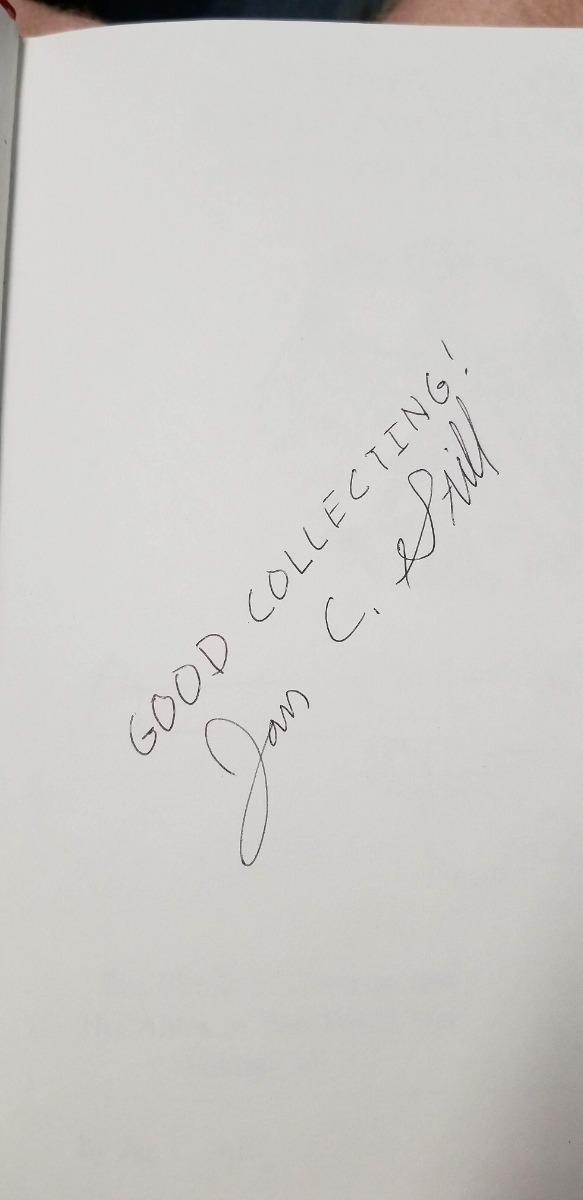 GOOD COLLECTING!
Jan C. Still